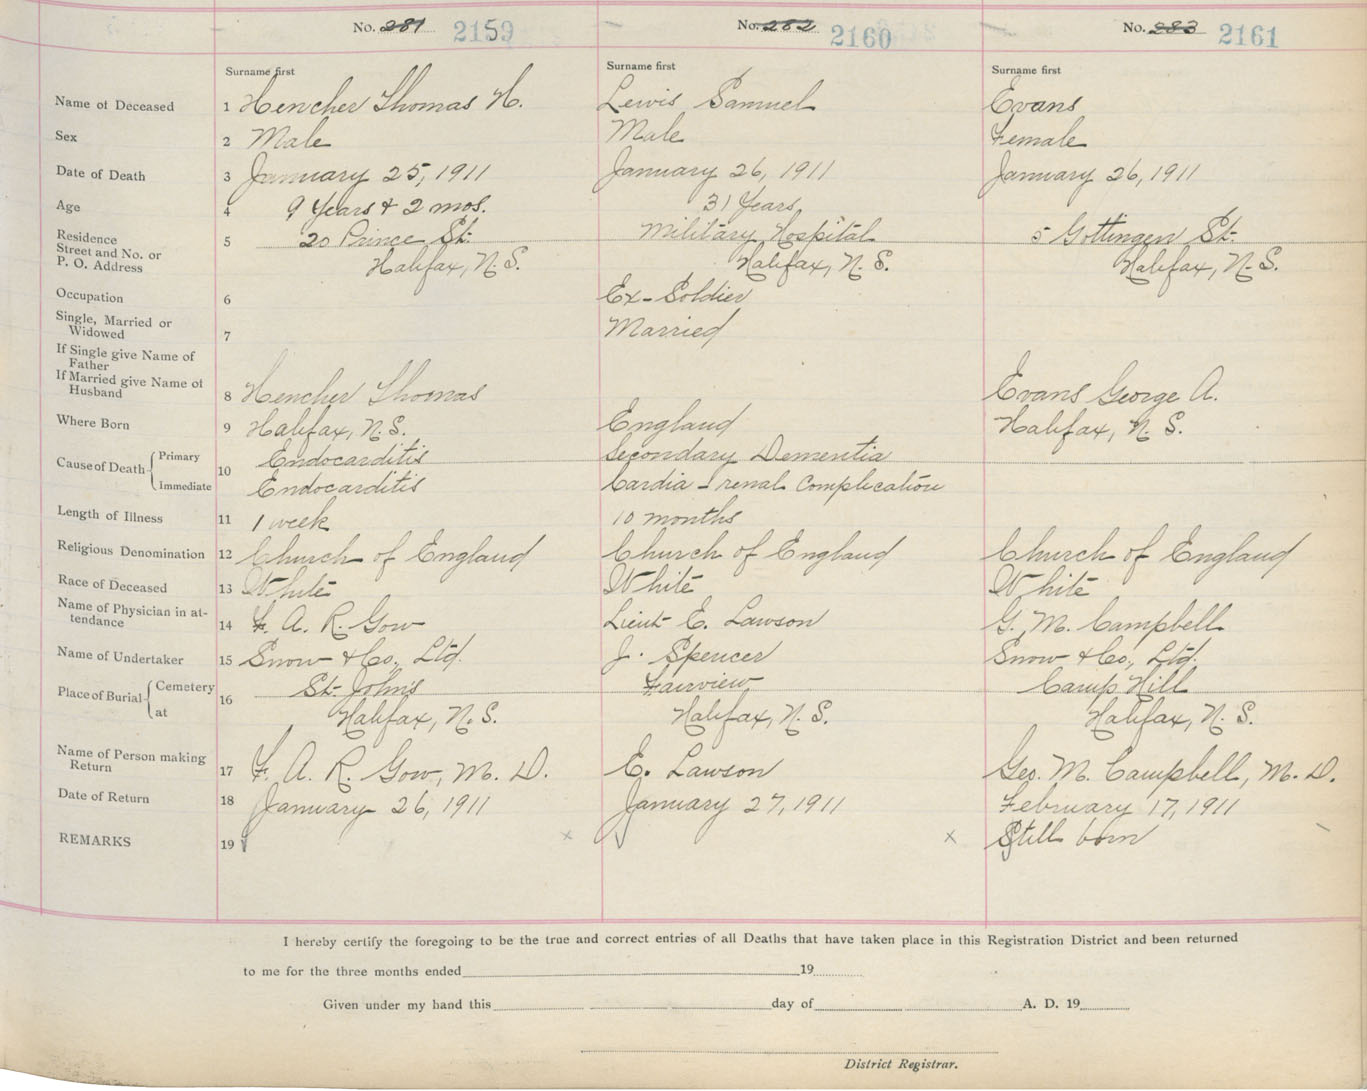 No. 281 2159 No. 282 2160 No. 283 2161
Surname first Surname first Surname first
Name of Deceased 1 Hencher Thomas H. Lewis Samuel Evans
Sex 2 Male Male Female
Date of Death 3 January 25, 1911 January 26, 1911 January 26, 1911
Age 4 9 Years & 2 mos. 31 Years
Residence
Street and No. or 5 20 Prince St. Military Hospital 5 Gottingen St.
P. O. Address Halifax, N. S. Halifax, N. S. Halifax, N. S.
Occupation 6 Ex-Soldier
Single, Married or
Widowed 7 Married
If Single give Name of
Father
If Married give Name of
Husband 8 Hencher Thomas Evans George A.
Where Born 9 Halifax, N. S. England Halifax, N. S.
Cause of Death Primary 10 Endocarditis Secondary Dementia
Immediate Endocarditis Cardia-renal Complication
Length of Illness 11 1 week 10 months
Religious Denomination 12 Church of England Church of England Church of England
Race of Deceased 13 White White White
Name of Physician in at-
tendance 14 F. A. R. Gow Lieut E. Lawson G. M. Campbell
Name of Undertaker 15 Snow & Co., Ltd. J. Spencer Snow & Co., Ltd.
Place of Burial Cemetery 16 St. John's Fairview Camp Hill
at Halifax, N. S. Halifax, N. S. Halifax, N. S.
Name of Person making
Return 17 F. A. R. Gow, M. D. E. Lawson Geo. M. Campbell, M. D.
Date of Return 18 January 26, 1911 January 27, 1911 February 17, 1911
REMARKS 19 Still born
I hereby certify the foregoing to be the true and correct entries of all Deaths that have taken place in this Registration District and been returned
to me for the three months ended 19
Given under my hand this day of A. D. 19
District Registrar.